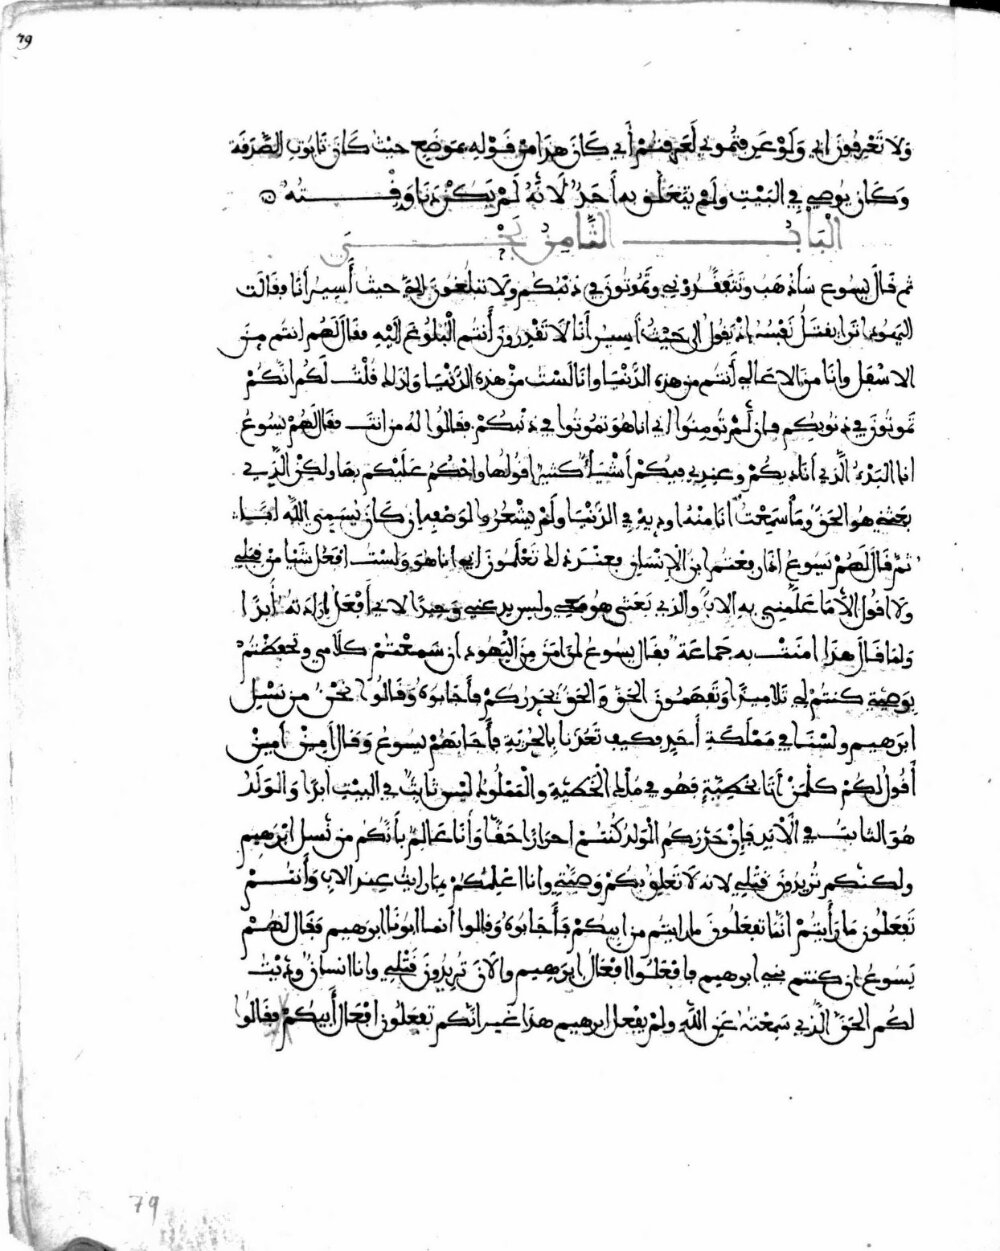 79
ولا تعرفون ابي ولو عرفتموني لعرفتم أبي كان هذا من قوله بموضع حيث كان تابوت الصدقة
وكان يوصي في البيت ولم يتعلق به أحد لانه لم يكن دنا وقته
الباب الثامن
ثم قال يسوع سأذهب وتتفقدوني وتموتون في ذنبكم ولا تبلغون الى حيث أسير أنا وقالت
اليهود اترا يقتل نفسه اذ يقول الى حيث أسير أنا لا تقدرون أنتم البلوغ اليه فقال لهم انتم من
الاسفل وانا من الاعالي أنتم من هذه الدنيا وانا لست من هذه الدنيا ولذلك قلت لكم انكم
تموتون في ذنوبكم فان لم تومنوا اني انا هو تموتوا في ذنبكم فقالوا له من انت فقال لهم يسوع
انا البدء الذي أناديكم وعندي فيكم أشياء كثير اقولها واحكم عليكم بها ولكن الذي
بعثني هو الحق وما سمعت أنا منه اوديه في الدنيا ولم يشعروا لوضعه ان كان يسمي الله ابا
ثم قال لهم يسوع اذا رفعتم ابن الإنسان فعند ذلك تعلمون اني انا هو ولست افعل شيا من قبلي
ولا اقول الا ما علمني به الاب والذي بعثني هو معي وليس يدعني وحيدا لاني أفعل ارادته أبدا
ولما قال هذا امنت به جماعة فقال يسوع لمن امن من اليهود ان سمعتم كلامي وتحفظتم
بوصيتي كنتم لي تلاميذا وتفهمون الحق والحق يحرركم فأجابوه وقالوا نحن من نسل
ابرهيم ولسنا في مملكة أحد فكيف تعدنا بالحرية فأجابهم يسوع وقال أمين أمين
أقول لكم كل من أتا بخطية فهو في ملك الخطية والمملوك ليس ثابت في البيت ابدا والولد
هو الثابت في الأبد فإن حرركم الولد كنتم احرارا حقا وأنا عالم بأنكم من نسل ابرهيم
ولكنكم تريدون قتلي لانه لا تعلق بكم وصيتي وانا اعلمكم بما رايت عند الاب وأنتم
تفعلون ما رأيتم انما تفعلون ما رايتم من ابيكم فأجابوه وقالوا انما ابونا ابرهيم فقال لهم
يسوع ان كنتم بني ابرهيم فافعلوا افعال ابرهيم والان تريدون قتلي وانا انسان وديت
لكم الحق الذي سمعته عن الله ولم يفعل ابرهيم هذا غير انكم تفعلون افعال أبيكم فقالوا
79